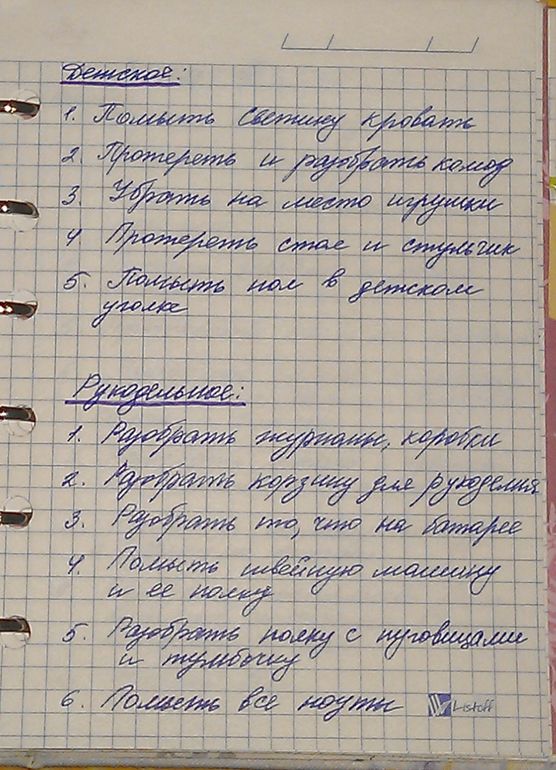 Детское:
1. Помыть Светину кровать
2. Протереть и разобрать комод
3. Убрать на место игрушки
4 Протереть стол и стульчик
5. Помыть пол в детском
уголке
Рукодельное:
1. Разобрать журналы, коробки
2. Разобрать корзину для рукоделия
3. Разобрать то, что на батарее
4. Помыть швейную машину
и ее полку
5. Разобрать полку с пуговицами
и тумбочку
6. Помыть все ноуты
Listoff